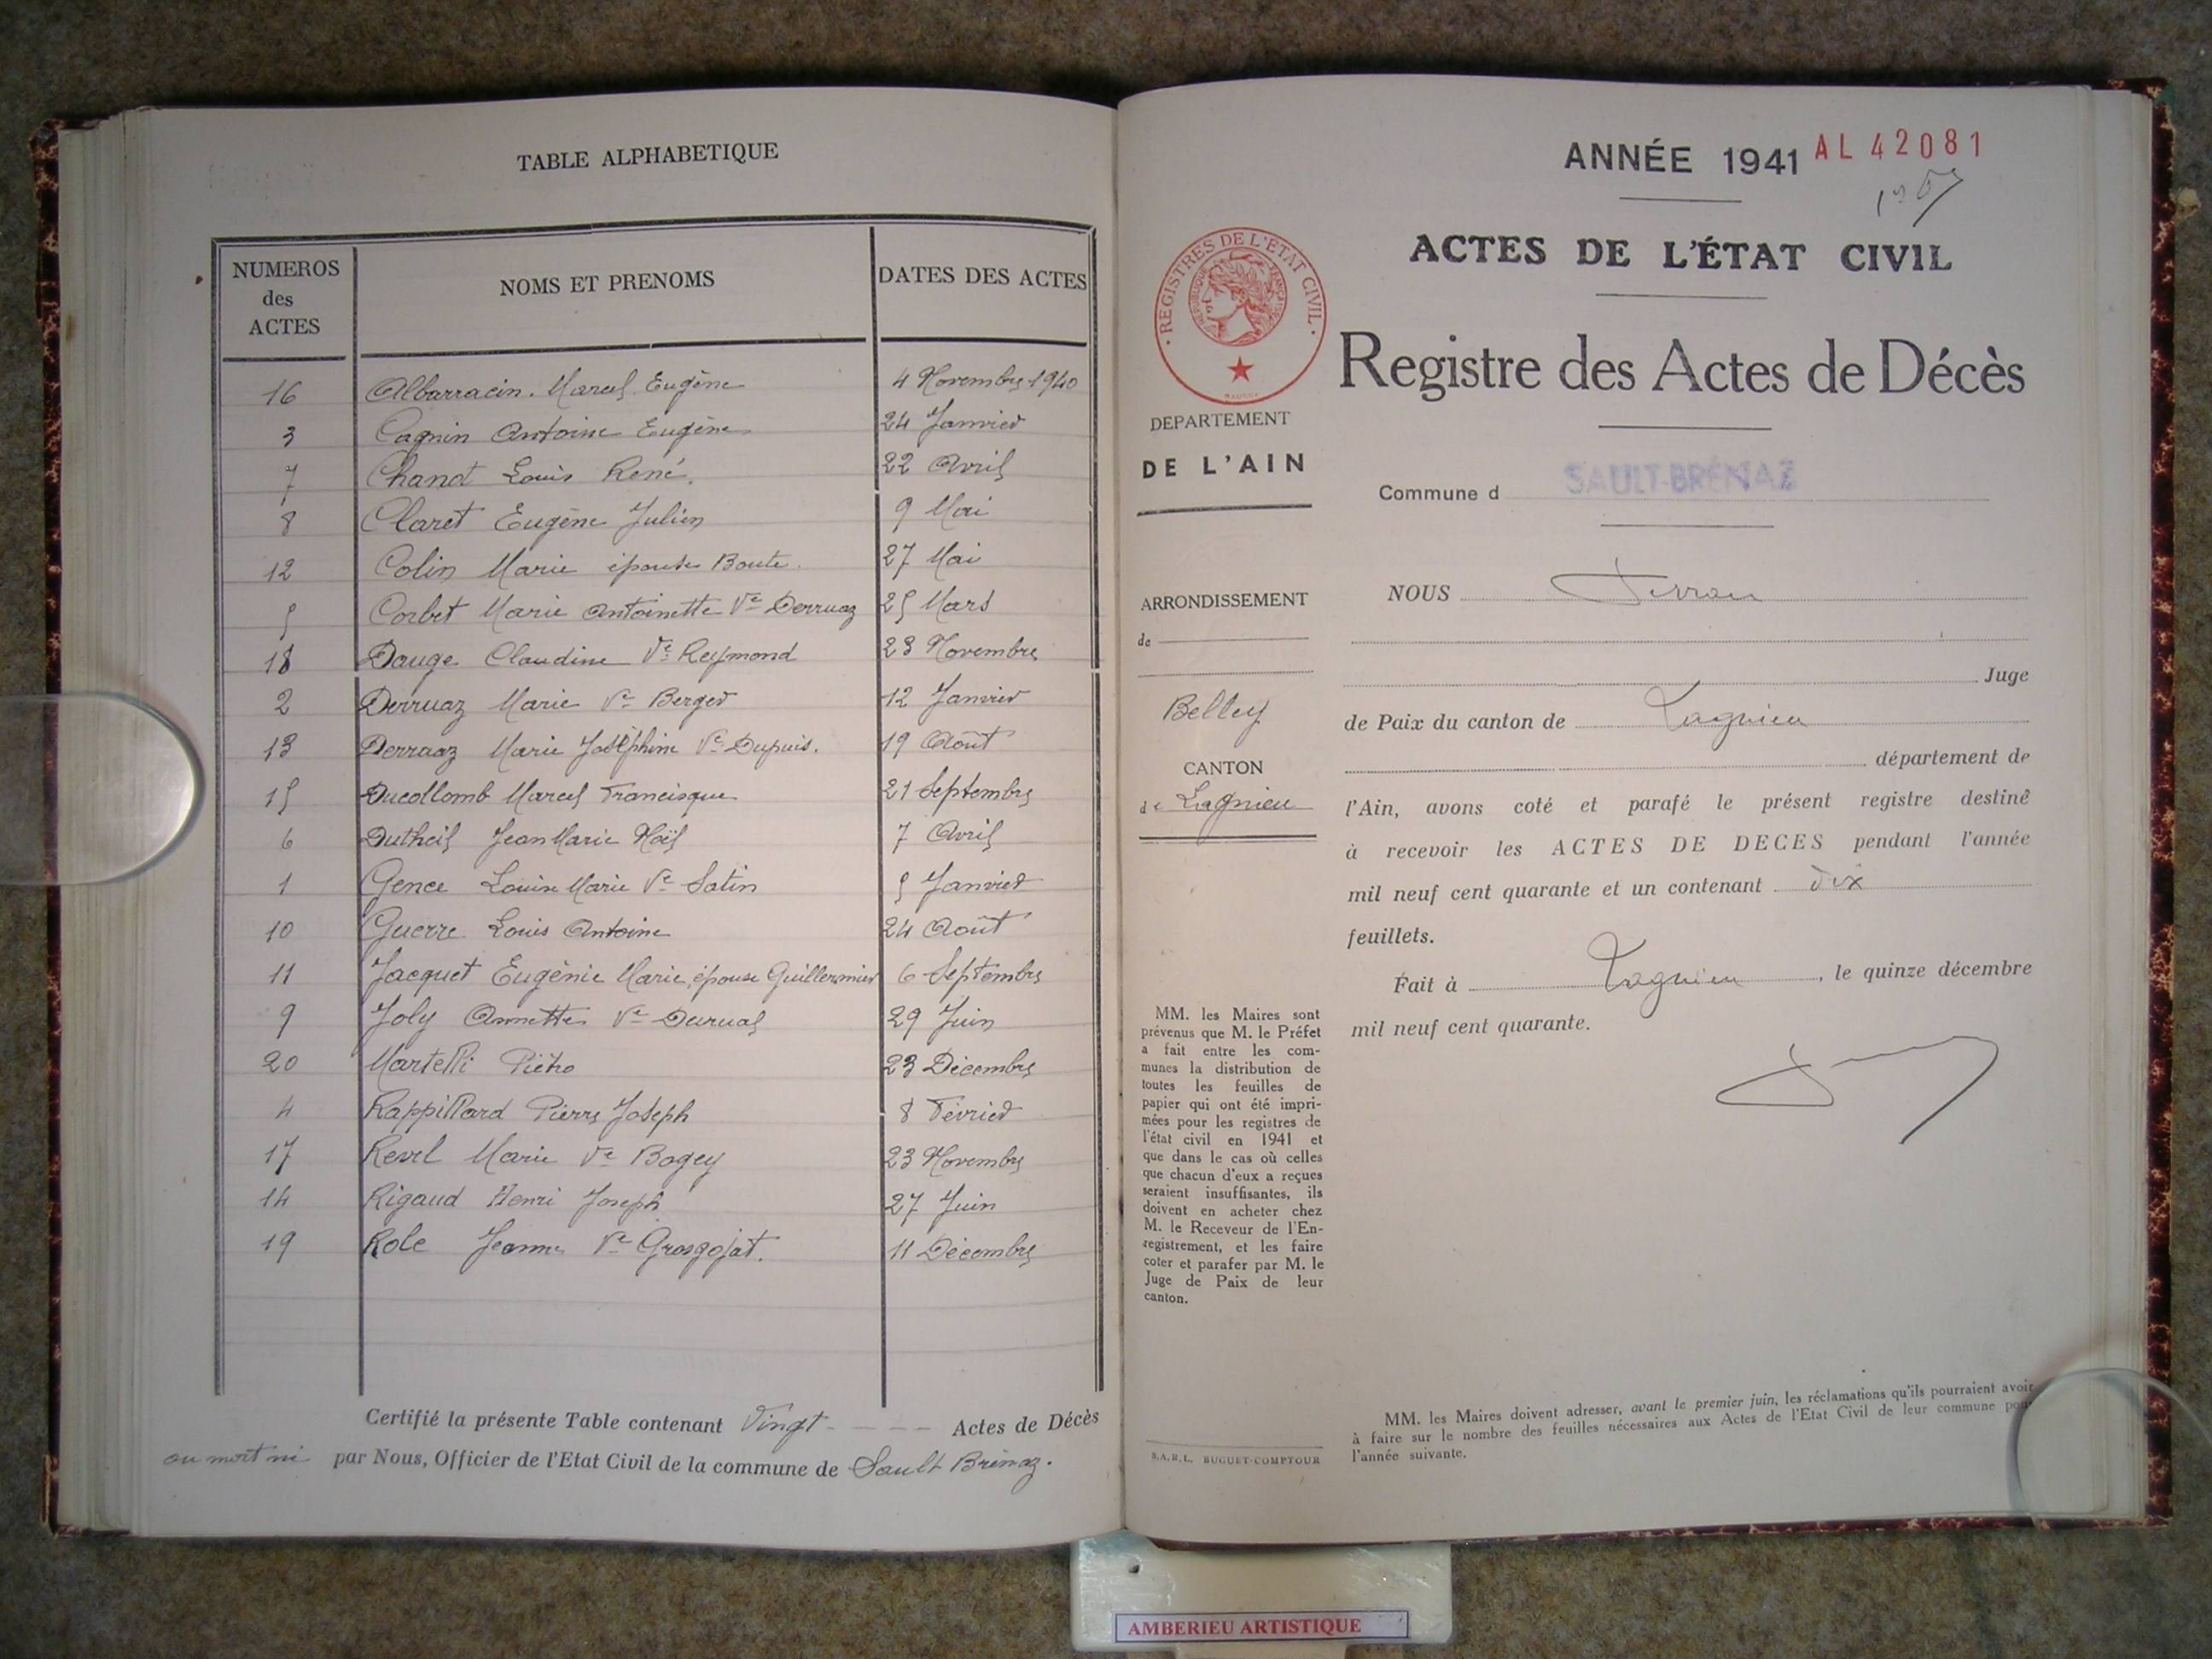 TABLE ALPHABETIQUE
NUMEROS des ACTES NOMS ET PRENOMS DATES DES ACTES
16 Albarracin. Marcel Eugène 4 Novembre 1940
3 Cagnin Antoine Eugène 24 Janvier
7 Chanot Louis René. 22 Avril
8 Claret Eugène Julien 9 Mai
12 Colin Marie épouse Boute. 27 Mai
5 Corbet Marie Antoinette Vve Derruaz 25 Mars
18 Dauge Claudine Vve Reymond 23 Novembre
2 Derruaz Marie Vve Berger 12 Janvier
13 Derruaz Marie Joséphine Vve Dupuis. 19 Août
15 Ducollomb Marcel Francisque 21 Septembre
6 Dutheil Jean Marie Noël 7 Avril
1 Gence Louise Marie Vve Satin 5 Janvier
10 Guerre Louis Antoine 24 Août
11 Jacquet Eugénie Marie, épouse Guillermier 6 Septembre
9 Joly Annette Vve 29 Juin
20 Martelli Piétro 23 Décembre
4 Rappillard Pierre Joseph 8 Février
17 Revel Marie Vve Bogey 23 Novembre
14 Rigaud Henri Joseph 27 Juin
19 Role Jeanne Vve Grosgojat. 11 Décembre
Certifié la présente Table contenant Vingt Actes de Décès
ou mort né par Nous, Officier de l'Etat Civil de la commune de Sault Brénaz.
ANNÉE 1941 AL 42081
ACTES DE L'ÉTAT CIVIL
· REGISTRES DE L'ETAT CIVIL ·
REPUBLIQUE FRANÇAISE
Registre des Actes de Décès
DEPARTEMENT
DE L'AIN
Commune d SAULT-BRÉNAZ
ARRONDISSEMENT
de
Belley
CANTON
de Lagnieu
NOUS
Juge
de Paix du canton de Lagnieu
département de
l'Ain, avons coté et parafé le présent registre destiné
à recevoir les ACTES DE DECES pendant l'année
mil neuf cent quarante et un contenant dix
feuillets.
Fait à Lagnieu, le quinze décembre
mil neuf cent quarante.
MM. les Maires sont
prévenus que M. le Préfet
a fait entre les com-
munes la distribution de
toutes les feuilles de
papier qui ont été impri-
mées pour les registres de
l'état civil en 1941 et
que dans le cas où celles
que chacun d'eux a reçues
seraient insuffisantes, ils
doivent en acheter chez
M. le Receveur de l'En-
registrement, et les faire
coter et parafer par M. le
Juge de Paix de leur
canton.
S.A.R.L. BUGUET-COMPTOUR
MM. les Maires doivent adresser, avant le premier juin, les réclamations qu'ils pourraient avoir
à faire sur le nombre des feuilles nécessaires aux Actes de l'Etat Civil de leur commune pour
l'année suivante.
AMBERIEU ARTISTIQUE